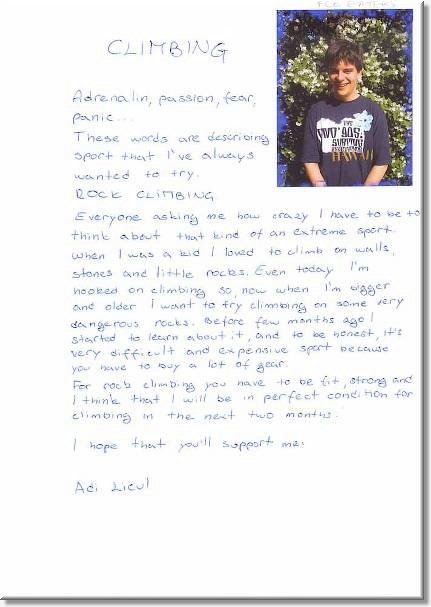 CLIMBING
Adrenalin, passion, fear,
panic...
These words are describing
sport that I've always
wanted to try.
ROCK CLIMBING
Everyone asking me how crazy I have to be to
think about that kind of an extreme sport.
When I was a kid I loved to climb on walls,
stones and little rocks. Even today I'm
hooked on climbing so, now when I'm bigger
and older I want to try climbing on some very
dangerous rocks. Before few months ago I
started to learn about it, and to be honest, it's
very difficult and expensive sport because
you have to buy a lot of gear.
For rock climbing you have to be fit, strong and
I think that I will be in perfect condition for
climbing in the next two months.
I hope that you'll support me.
Adi Licul
HAWAII